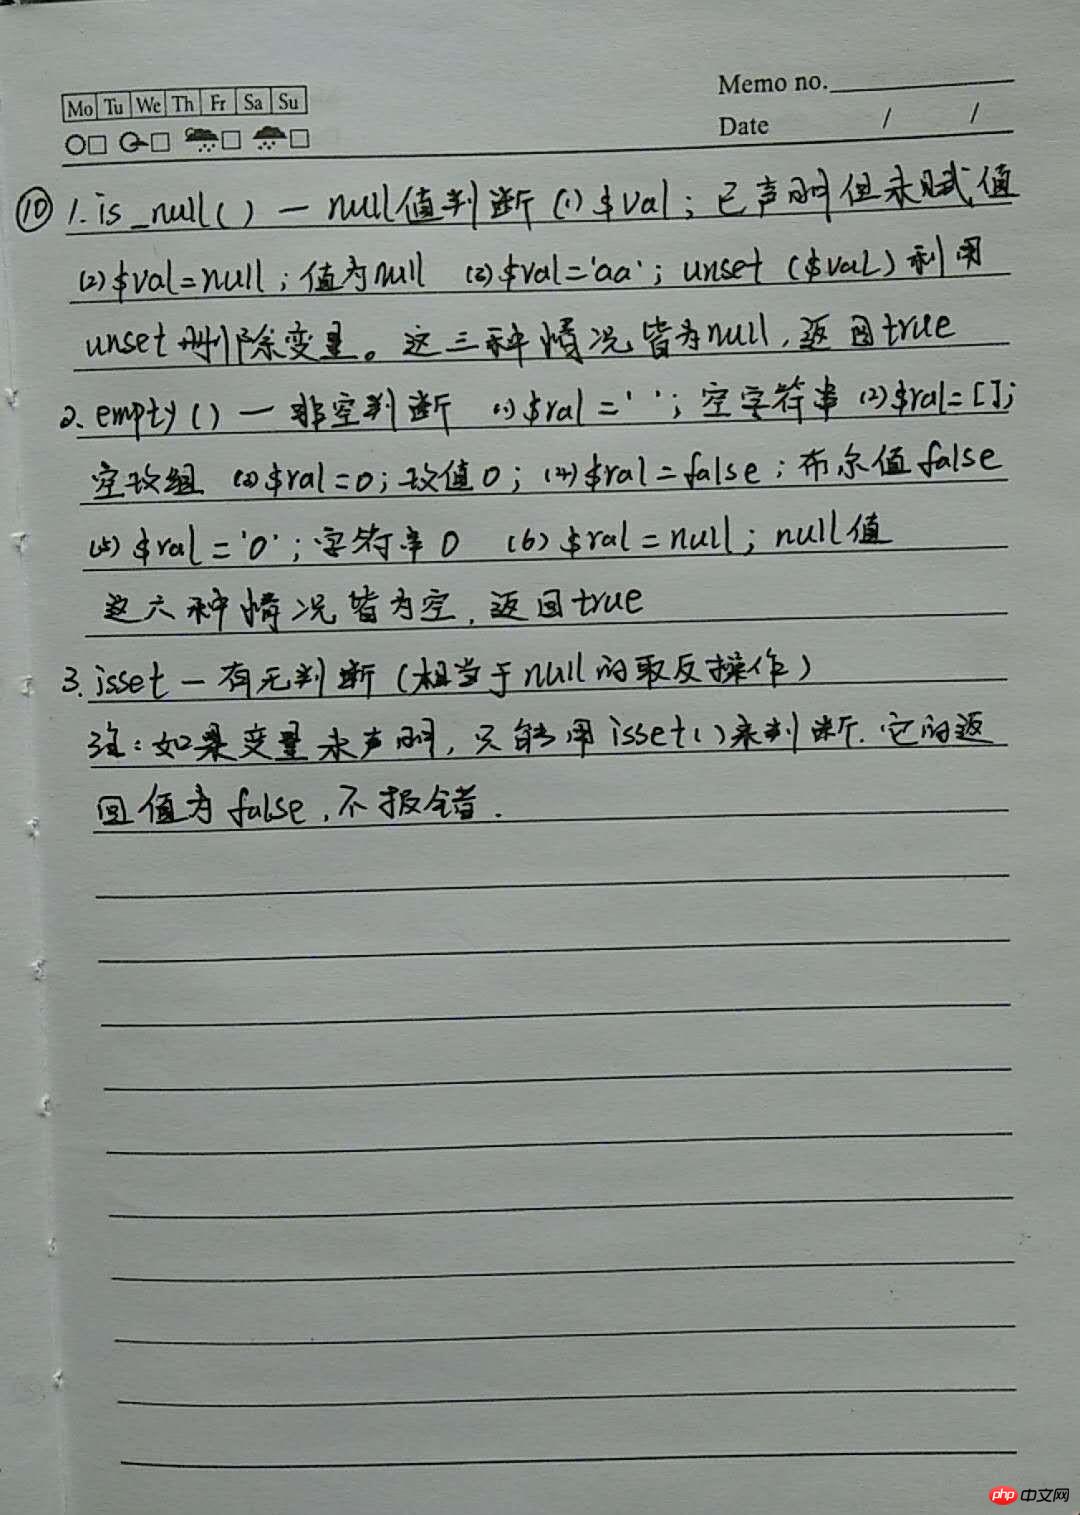 Mo Tu We Th Fr Sa Su
Memo no.
Date / /
⑩ 1. is_null() — null值判断 (1) $val; 已声明但未赋值
(2) $val=null; 值为null (3) $val='aa'; unset ($val) 利用
unset 删除变量。这三种情况皆为null, 返回true
2. empty() — 非空判断 (1) $val=' '; 空字符串 (2) $val=[];
空数组 (3) $val=0; 数值0; (4) $val=false; 布尔值false
(5) $val='0'; 字符串0 (6) $val=null; null值
这六种情况皆为空, 返回true
3. isset — 有无判断 (相当于null的取反操作)
注: 如果变量未声明, 只能用isset()来判断. 它的返
回值为false, 不报错.
php 中文网